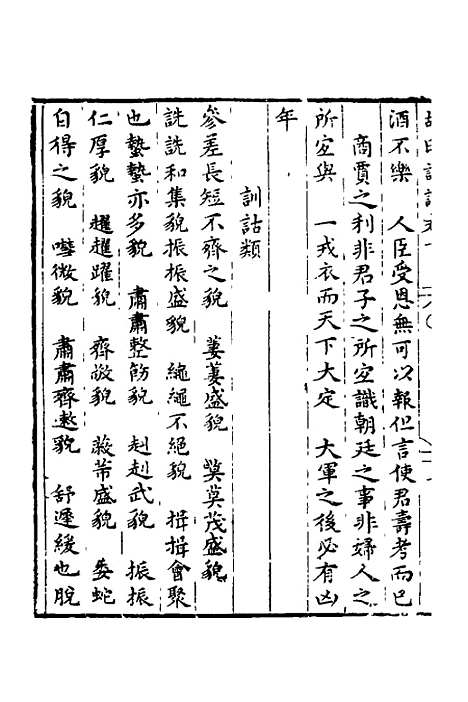 酒不樂　人臣受恩無可以報但言使君壽考而已
商賈之利非君子之所宜識朝廷之事非婦人之
所宜與　一戎衣而天下大定　大軍之後必有凶
年
訓詁類
參差長短不齊之貌　萋萋盛貌　莫莫茂盛貌
詵詵和集貌振振盛貌　繩繩不絕貌　揖揖會聚
也蟄蟄亦多貌　肅肅整飭貌　赳赳武貌　振振
仁厚貌　趯趯躍貌　齊敬貌　蔽芾盛貌　委蛇
自得之貌　嘒微貌　肅肅齊遬貌　舒遲緩也脫